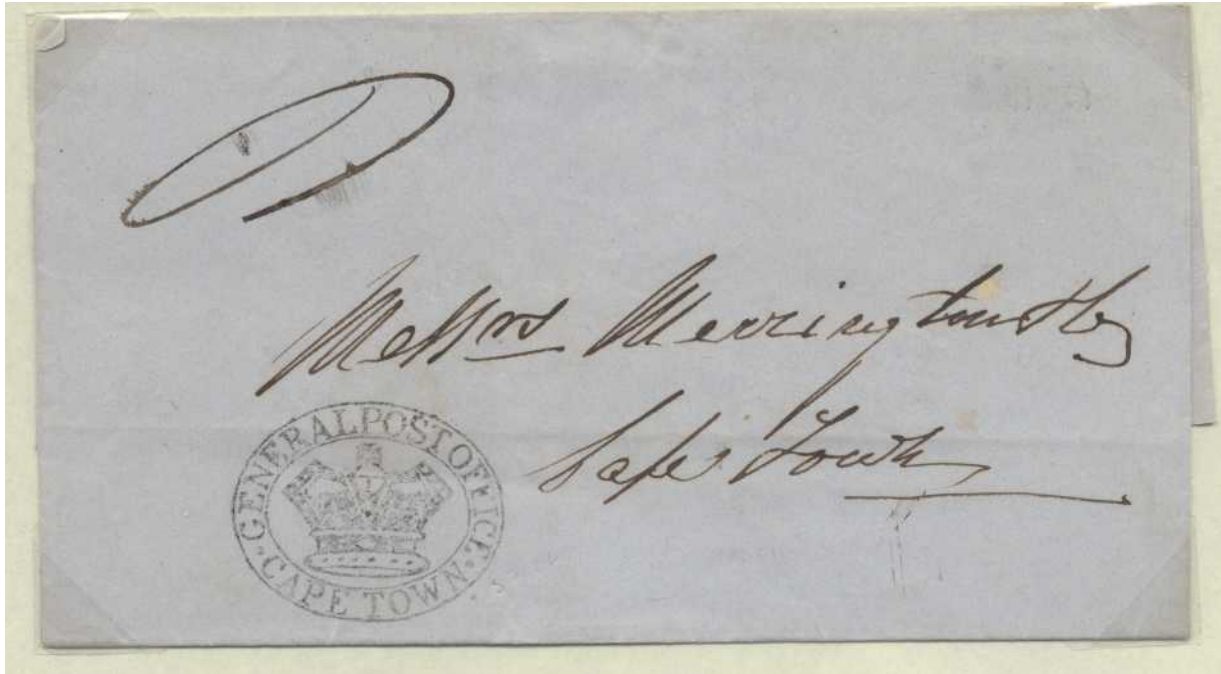 Messrs Merrington & Co
Cape Town
GENERAL POST OFFICE
CAPE TOWN